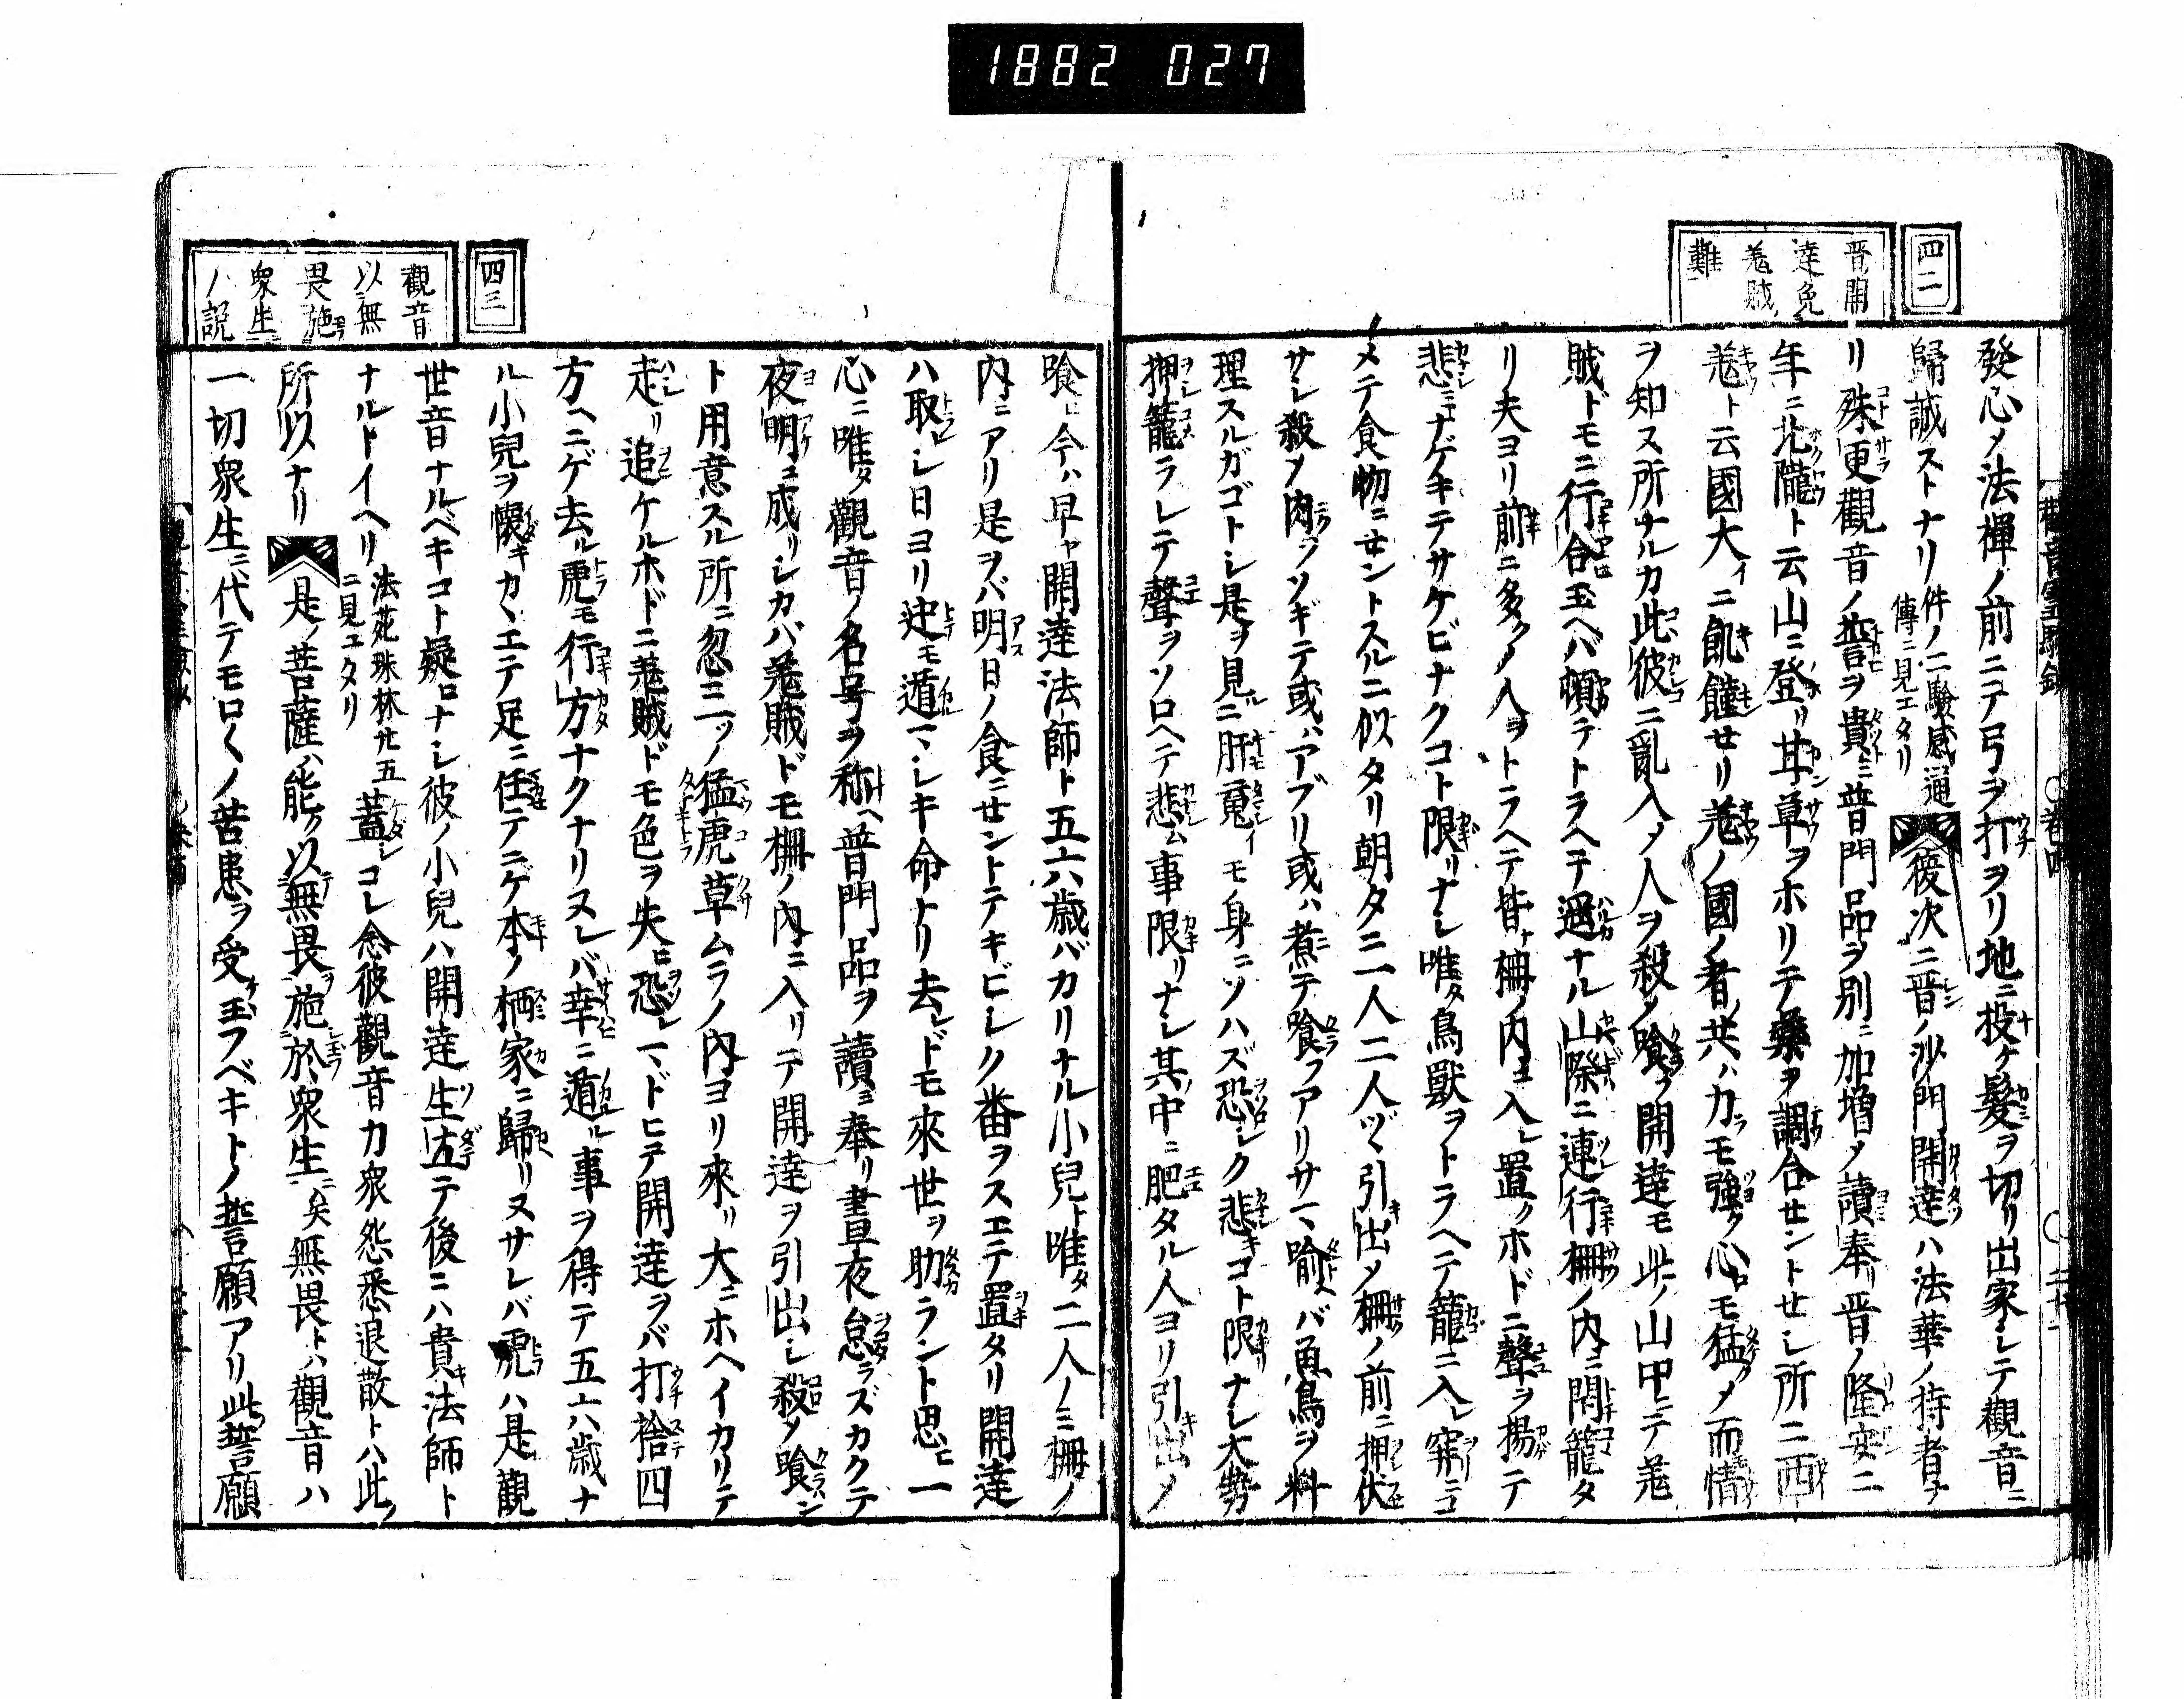 1882 027
四二
晋開
達免
羗賊
難
發心メ法禪ノ前ニテ弓ヲ打ヲリ地ニ投ケ髮ヲ切リ出家シテ觀音ニ
歸誠ストナリ件ノ二驗感通
傳ニ見エタリ
彼次ニ晋ノ沙門開達ハ法華ノ持者ナ
リ殊更觀音ノ誓ヲ貴ミ普門品ヲ別ニ加増メ讀奉リ晋ノ隆安二
年ニ北隴ト云山ニ登リ甘草ヲホリテ藥ヲ調合セントセシ所ニ西
羗ト云國大イニ飢饉セリ羗ノ國ノ者共ハ力ラモ強ク心ロモ猛クメ而情
ヲ知ヌ所ナルカ此彼ニ亂入ノ人ヲ殺メ喰フ開達モ此ノ山中ニテ羗
賊トモニ行合玉ヘバ頓テトラヘテ遥ナル山際ニ連行柵ノ内ニ閉籠タ
リ夫ヨリ前ニ多クノ人ヲトラヘテ皆ナ柵ノ内ニ入レ置クホドニ聲ヲ揚テ
悲ミナゲキテサケビナクコト限リナシ唯タ鳥獸ヲトラヘテ籠ニ入レ穽ニコ
メテ食物ニセントスルニ似タリ朝タニ一人二人ヅヽ引出メ柵ノ前ニ押伏
サシ殺メ肉ヲソギテ或ハアブリ或ハ煮テ喰フアリサマ喻ヘバ魚鳥ヲ料
理スルガゴトシ是ヲ見ルニ肝魂イモ身ニソハズ恐シク悲キコト限リナシ大勢
押籠ラレテ聲ヲソロヘテ悲ム事限リナシ其中ニ肥タル人ヨリ引出メ
喰ヒ今ハ早ヤ開達法師ト五六歲バカリナル小兒ト唯タ二人ノミ柵ノ
内ニアリ是ヲバ明日ノ食ニセントテキビシク番ヲスエテ置タリ開達
ハ取レシ日ヨリ迚モ遁マシキ命トリ去レドモ來世ヲ助ラント思ヒ一
心ニ唯タ觀音ノ名号ヲ称ヘ普門品ヲ讀ミ奉リ晝夜怠ラズカクテ
夜明ニ成リシカバ羗賊ドモ柵ノ内ニ入リテ開達ヲ引出シ殺メ喰ン
ト用意スル所ニ忽ニ一ツノ猛虎草ムラノ内ヨリ來リ大ニホヘイカリテ
走リ追ケルホドニ羗賊ドモ色ヲ失ヒ恐レマドヒテ開達ヲバ打捨四
方ヘニゲ去ル虎モ行方ナクナリヌレバ幸ニ遁ル事ヲ得テ五六歲ナ
ル小兒ヲ懐キカヽエテ足ニ任テニゲ本ノ栖家ニ歸リヌサレバ虎ハ是觀
世音ナルベキコト疑ロナシ彼ノ小兒ハ開達生立テ後ニハ貴キ法師ト
ナルトイヘリ法苑珠林廿五
ニ見エタリ
蓋シコレ念彼觀音力衆怨悉退散トハ此ノ
所以ナリ
是ノ菩薩ハ能ク以無畏施於衆生ニ矣無畏トハ觀音ハ
一切衆生ニ代テモロ〱ノ苦患ヲ受玉フベキトノ誓願アリ此誓願
四三
觀音
以無
畏施
衆生
ノ説